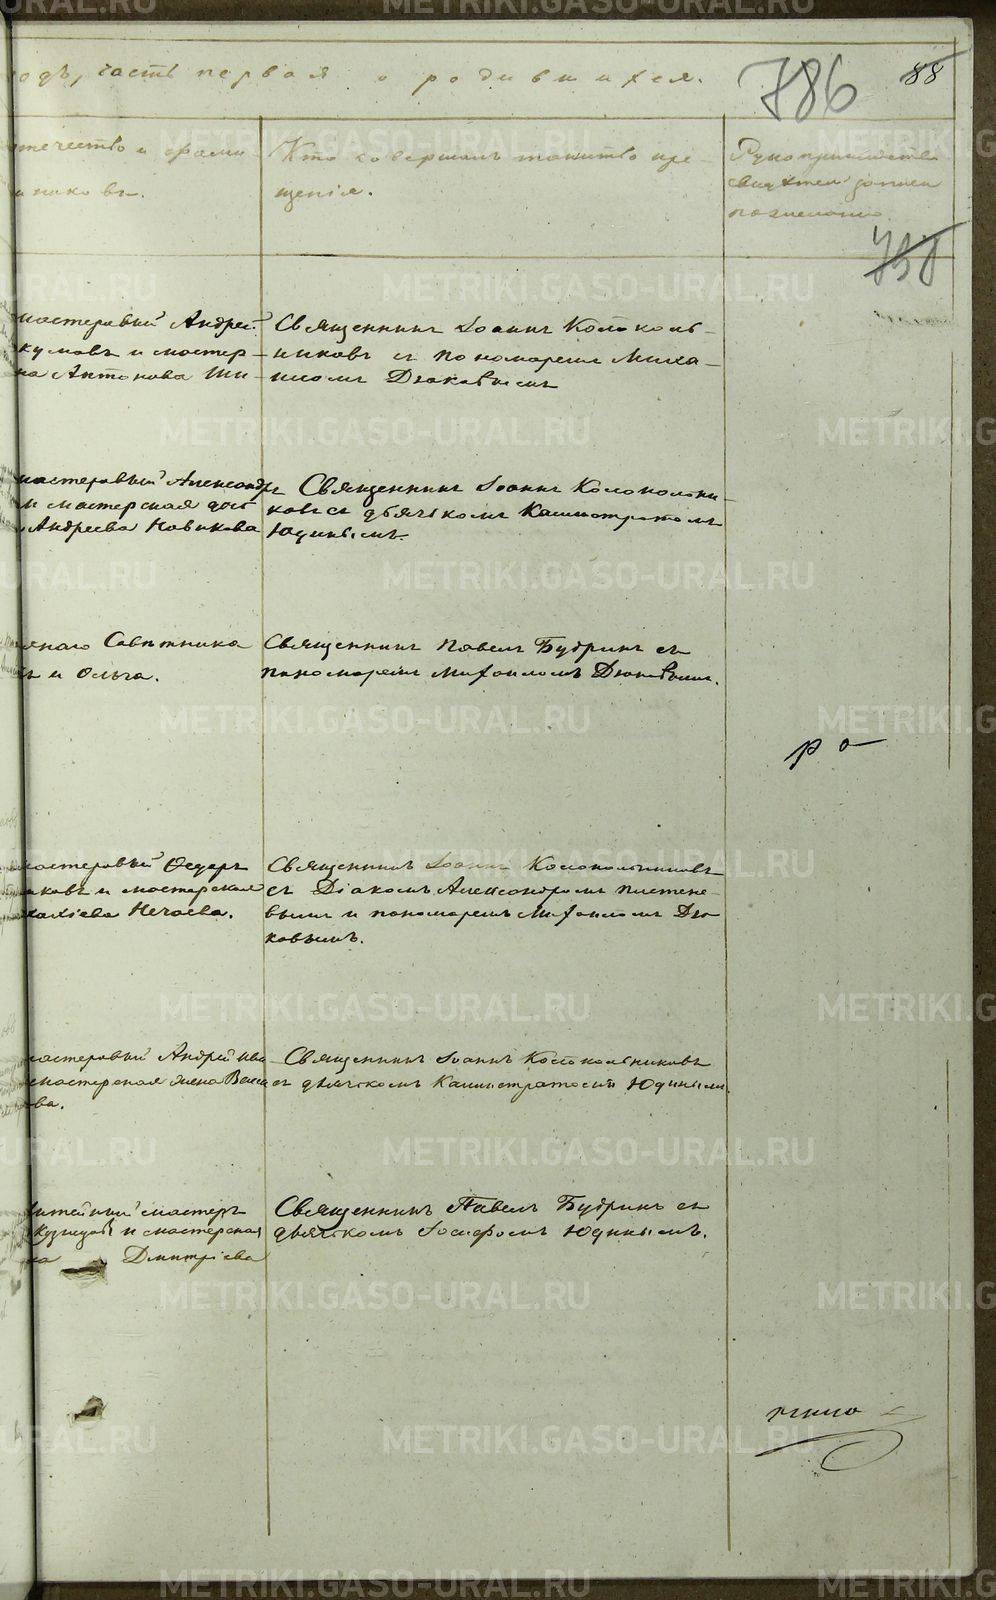 одъ, часть первая о родившихся.
786
88
течество и фами-
никовъ.
Кто совершалъ таинство кре-
щенія.
Рукоприкладство
свидѣтелей записи
по желанію.
738
мастеровый Андрей
кумовъ и мастер-
на Антонова Ши-
Священникъ Іоаннъ Колоколь-
никовъ съ пономаремъ Миха-
иломъ Дьяковымъ
мастеровый Александръ
и мастерская дочь
Андреева Новикова
Священникъ Іоаннъ Колокольни-
ковъ съ дьячкомъ Каллистратомъ
Юдинымъ.
Совѣтника
ъ и Ольга.
Священникъ Павелъ Будринъ съ
пономаремъ Михаиломъ Дьяковымъ.
мастеровый Ѳедоръ
ковъ и мастерская
Нечаева.
Священникъ Іоаннъ Колокольниковъ
съ Діакомъ Александромъ Пистене-
вымъ и пономаремъ Михаиломъ Дья-
ковымъ.
мастеровый Андрей Ива
мастерская жена Васи
ва.
Священникъ Іоаннъ Колокольниковъ
съ дьячкомъ Каллистратомъ Юдинымъ.
мастеръ
Кузнецовъ и мастерская
на Дмитріева
Священникъ Павелъ Будринъ съ
дьячкомъ Іосифомъ Юдинымъ.
METRIKI.GASO-URAL.RU